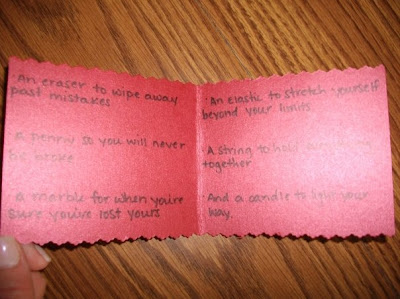 ·An eraser to wipe away
past mistakes
·A penny so you will never
be broke
·a marble for when you're
sure you've lost yours
·An elastic to stretch yourself
beyond your limits
·A string to hold everything
together
·And a candle to light your
way.